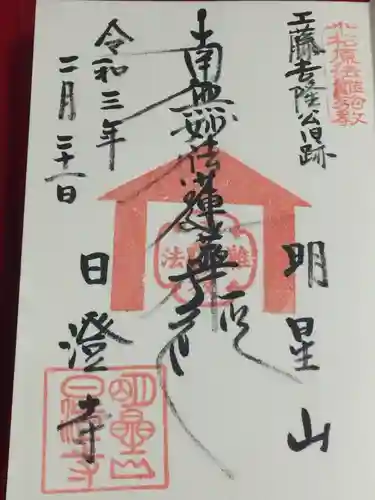 小松原法難殉教
工藤吉隆公旧跡
明星山
南無妙法蓮華経
日澄寺
令和三年
二月二十一日
明星山
日澄寺